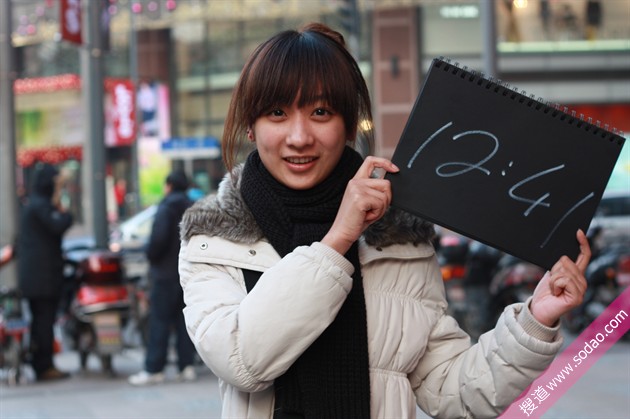 12:41
搜道 www.sodao.com